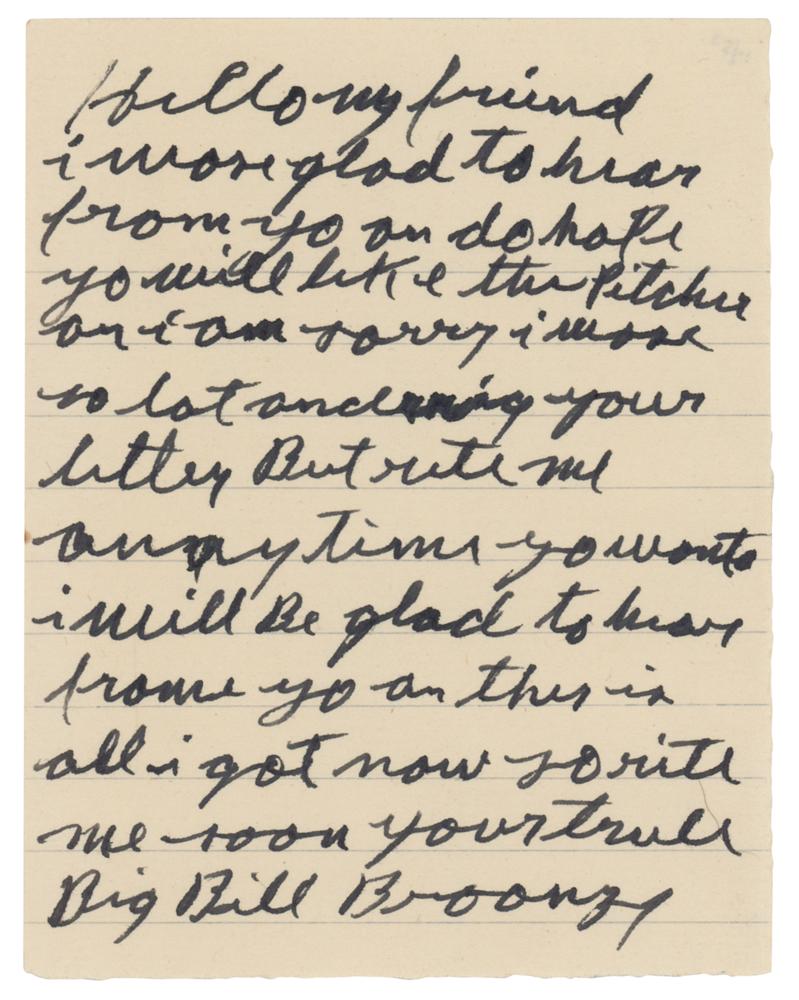 Hello my friend
i wose glad to hear
from yo an do hoPe
yo will like the Pitchie
an i am sorry i wose
so lat ancering your
letter But rite me
anny time yo wants
i will Be glad to hear
frome yo an this is
all i got now so rite
me soon yours trule
Big Bill Broonzy